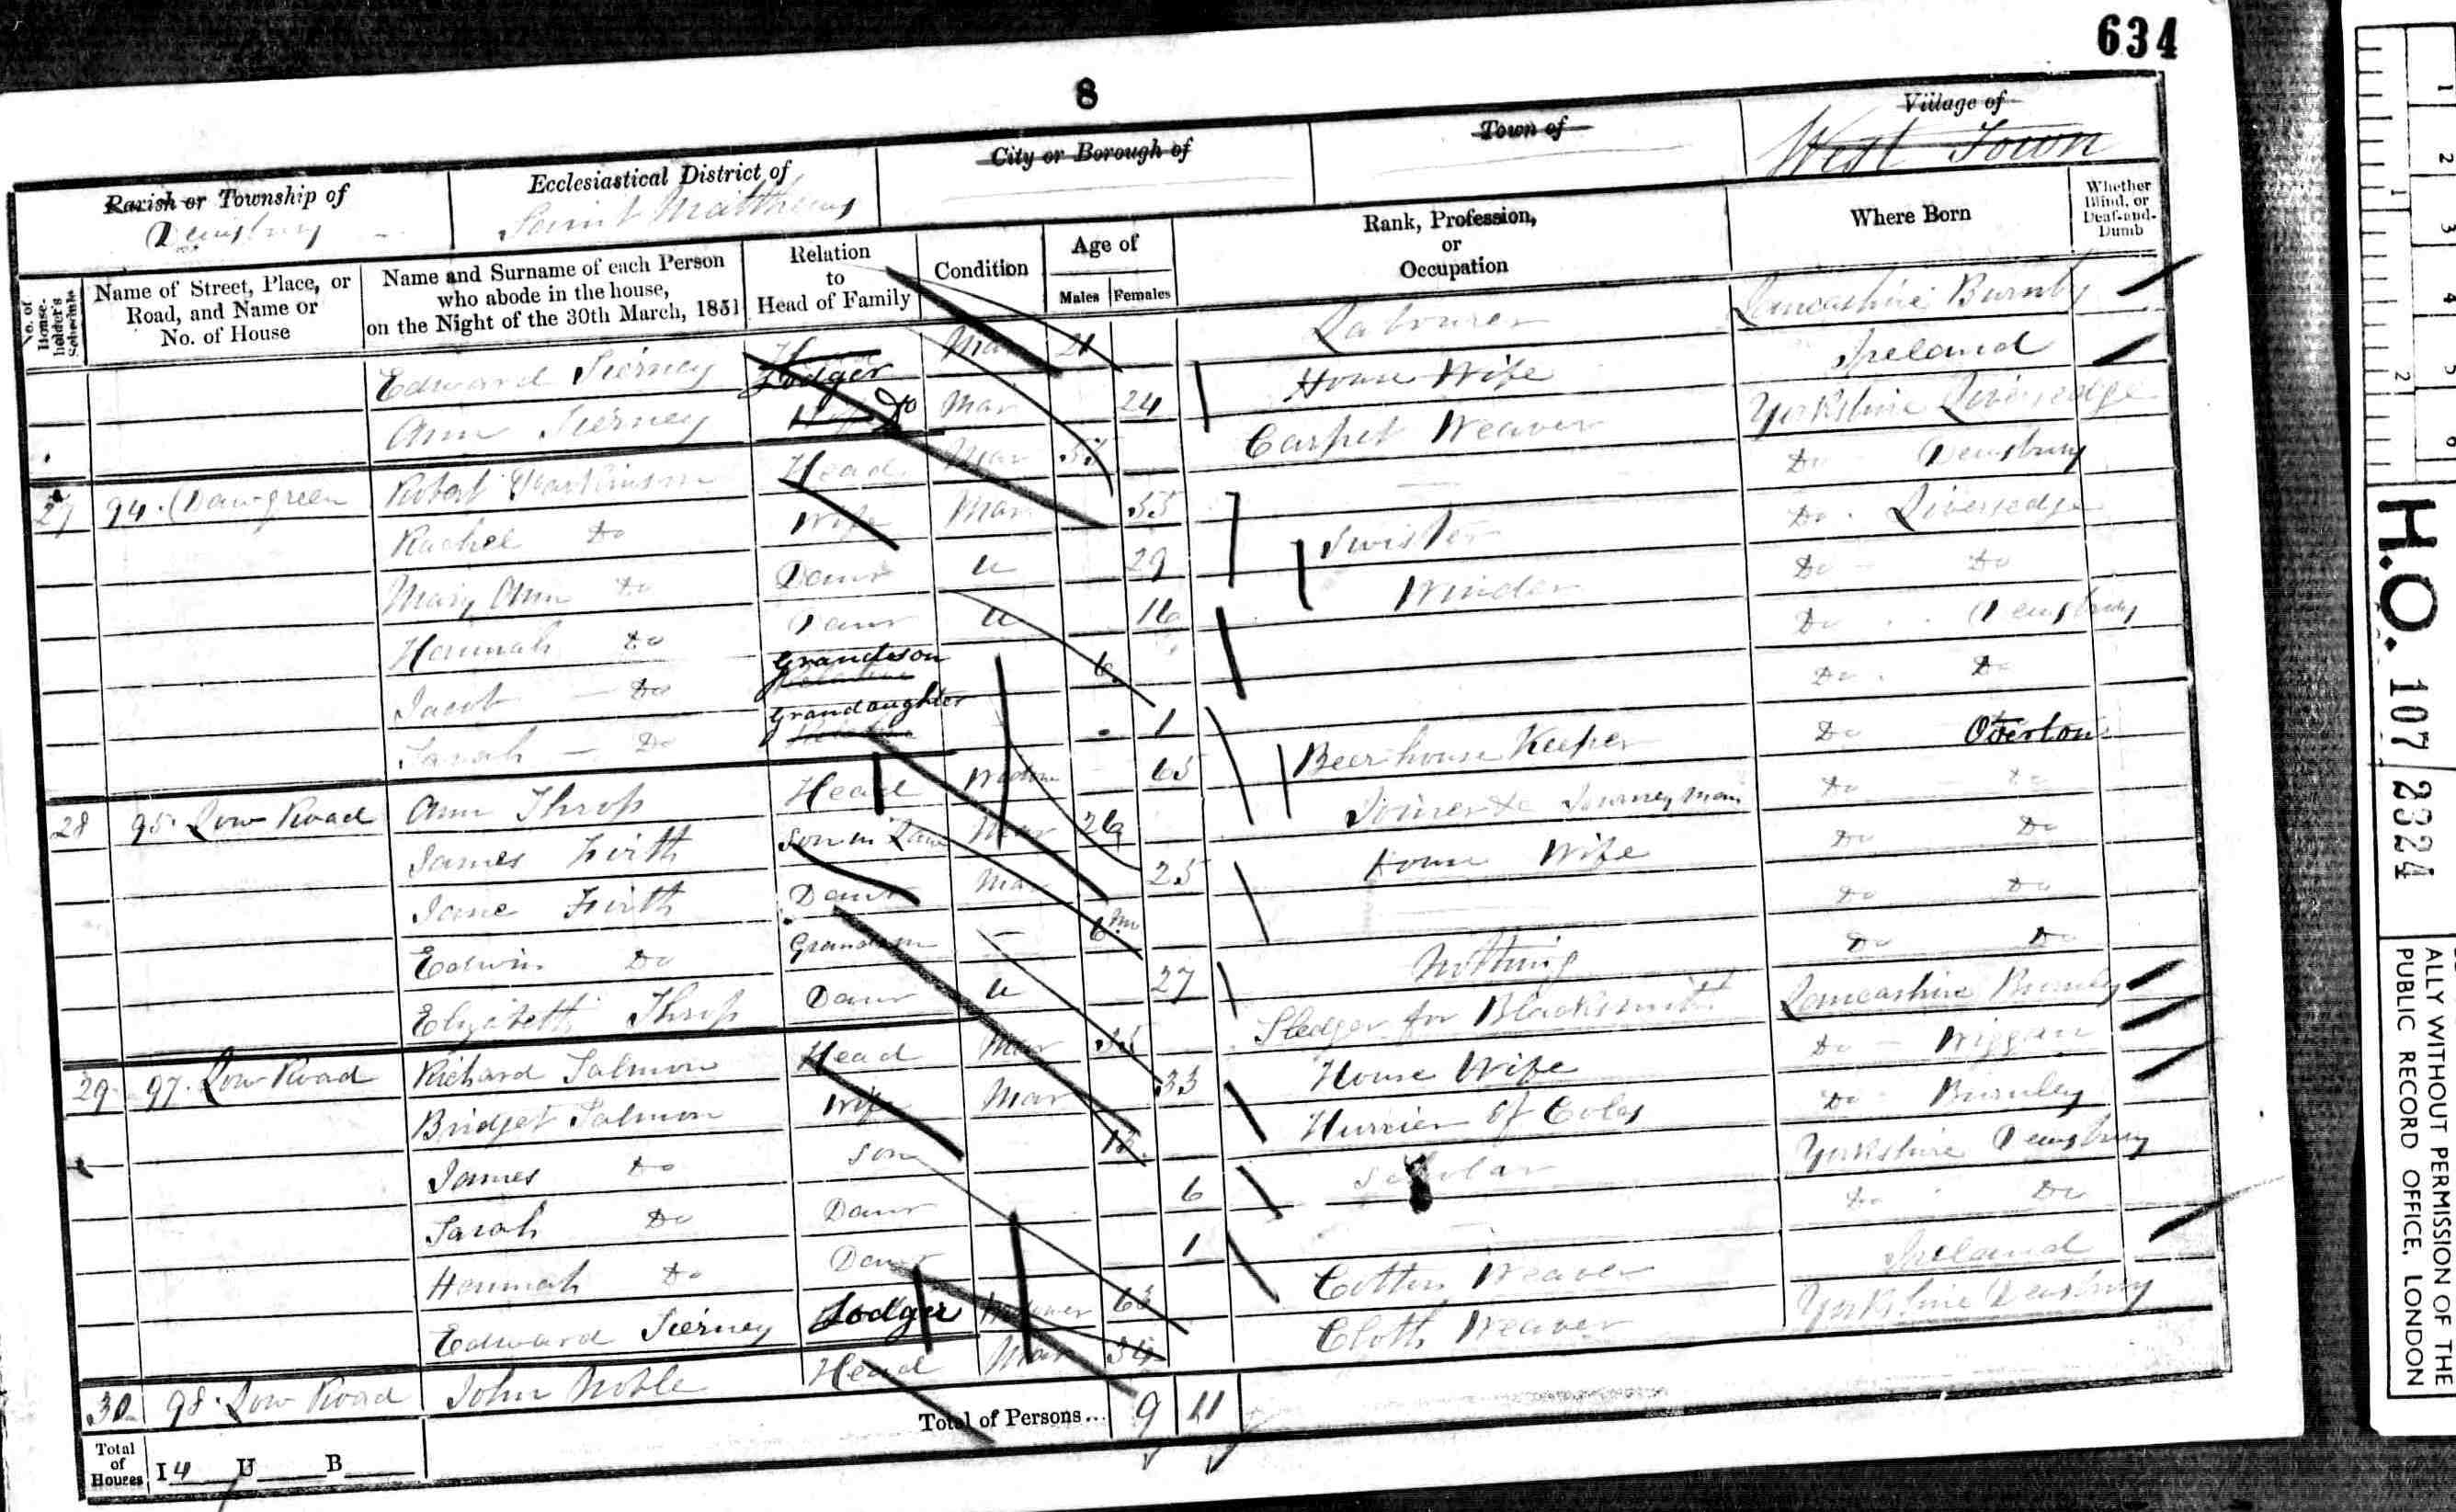 634
8
Parish or Township of
Dewsbury
Ecclesiastical District of
Saint Matthews
City or Borough of
Town of
Village of
West Town
No. of House-holder's Schedule
Name of Street, Place, or Road, and Name or No. of House
Name and Surname of each Person who abode in the house, on the Night of the 30th March, 1851
Relation to Head of Family
Condition
Age of
Males Females
Rank, Profession, or Occupation
Where Born
Whether Blind, or Deaf-and-Dumb
Edward Tierney Head Lodger Mar 21 Labourer Lancashire Burnley
Ann Tierney Wife Do Mar 24 House Wife Ireland
27 94 Dawgreen Robert Parkinson Head Mar Carpet Weaver Yorkshire Liversedge
Rachel Do Wife Mar 55 Do Dewsbury
Mary Ann Do Daur U 29 Twister Do Liversedge
Hannah Do Daur U 16 Winder Do Do
Jacob Do Grandson 6 Do Dewsbury
Sarah Do Grandaughter 1 Do Do
28 95 Low Road Ann Throp Head Widow 65 Beerhouse Keeper Do Overton
James Firth Son in Law Mar 26 Joiner &c Journeyman Do Do
Jane Firth Daur Mar 25 House Wife Do Do
Edwin Do Grandson 6 Mo Do Do
Elizabeth Throp Daur U 27 Nothing Do Do
29 97 Low Road Richard Salmon Head Mar 35 Sledger for Blacksmith Lancashire Burnley
Bridget Salmon Wife Mar 33 House Wife Do Wiggan
James Do Son 12 Hurrier of Coles Do Burnley
Sarah Do Daur 6 Scholar Yorkshire Dewsbury
Hannah Do Daur 1 Do Do
Edward Tierney Lodger Widower 63 Cotton Weaver Ireland
30 98 Low Road John Noble Head Mar 34 Cloth Weaver Yorkshire Dewsbury
Total of Houses I 4 U B Total of Persons... 9 11
H.O. 107/2324
ALLY WITHOUT PERMISSION OF THE
PUBLIC RECORD OFFICE, LONDON
1
2
3
4
5
6
1
2